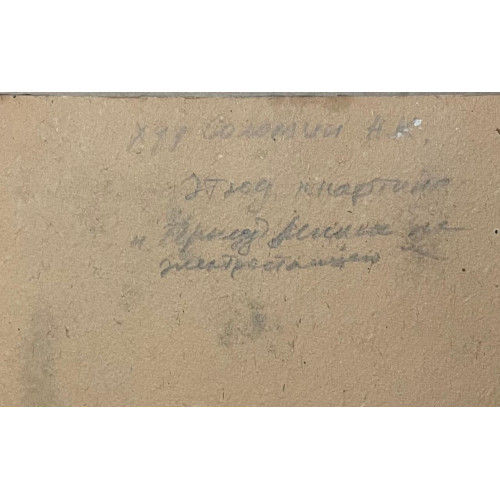 худ Соломин Н.К.
Этюд к картине
"Приезд Ленина на
электростанцию"